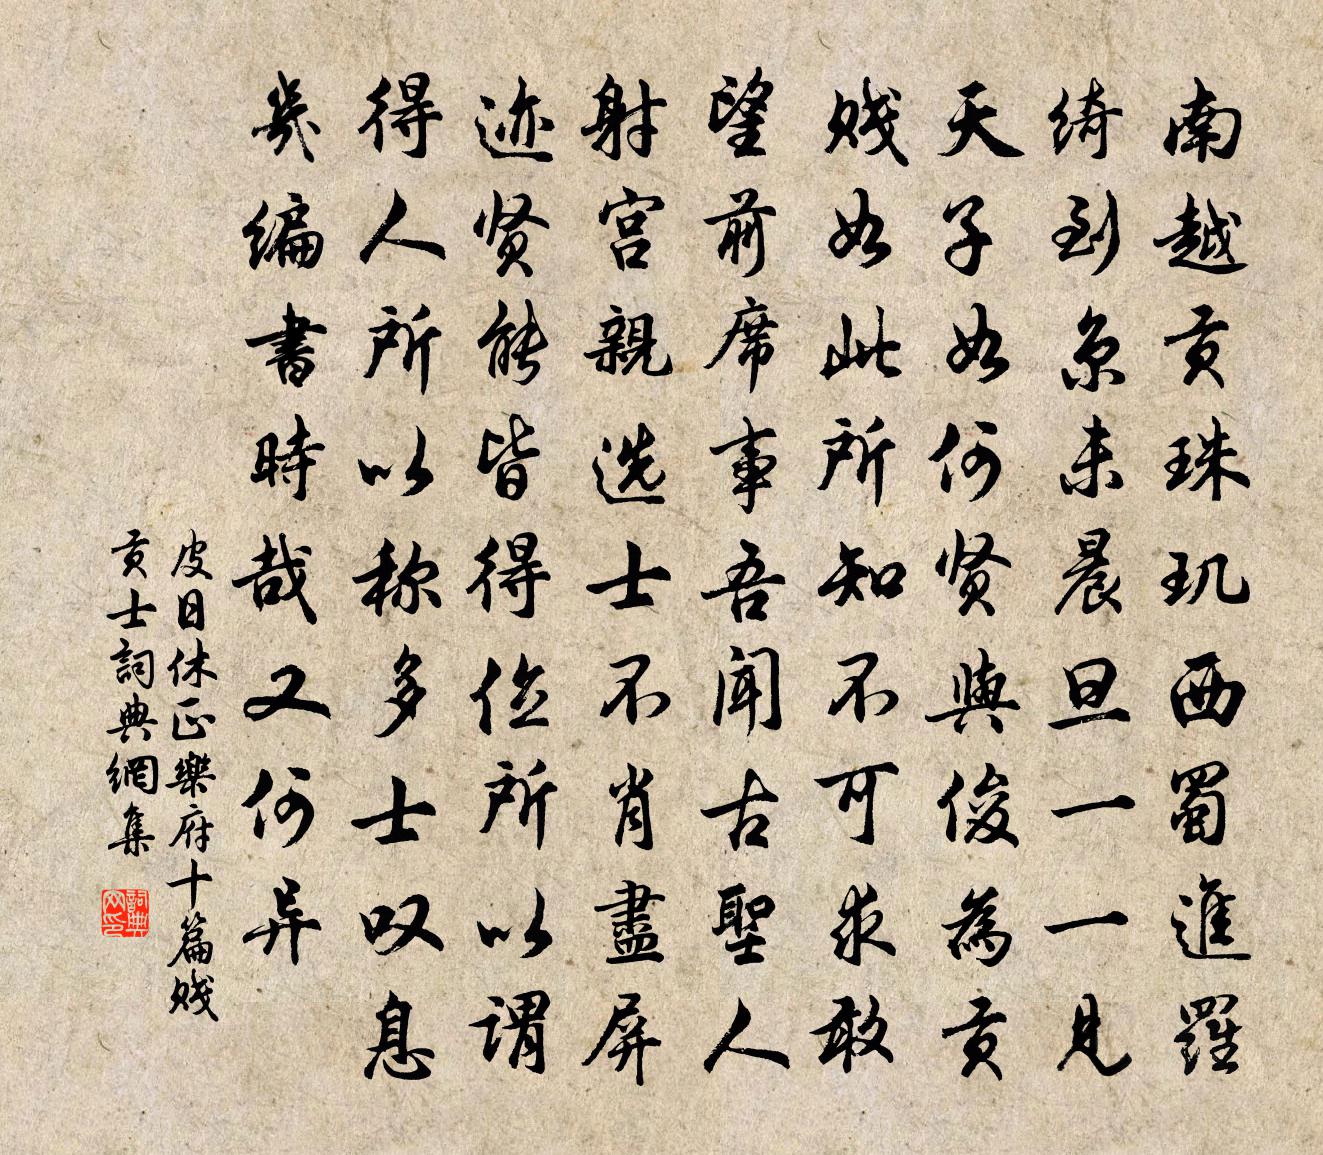 南越贡珠玑西蜀進羅
绮到京未晨旦一一見
天子如何贤與俊為贡
贱如此所知不可求敢
望前席事吾闻古聖人
射宫親选士不肖盡屏
迹贤能皆得位所以谓
得人所以称多士叹息
幾编書時哉又何异
皮日休正樂府十篇贱
贡士詞典網集
詞典网印